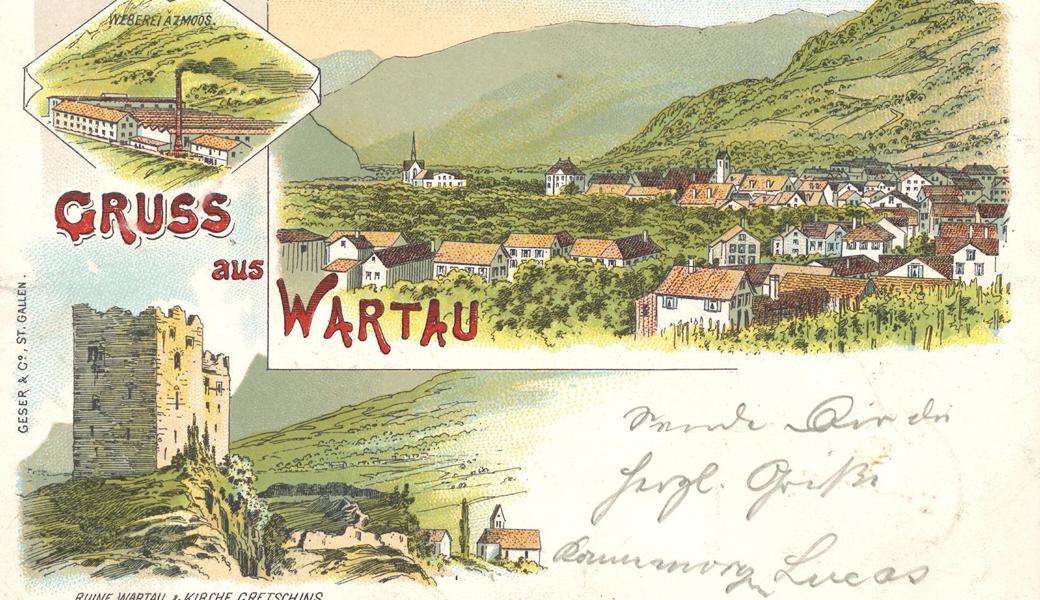 WEBEREI AZMOOS.
GRUSS
aus
WARTAU
GESER & Co. ST. GALLEN.
Sende Dir die
herzl. Grüße
Lucas
RUINE WARTAU & KIRCHE GRETSCHINS